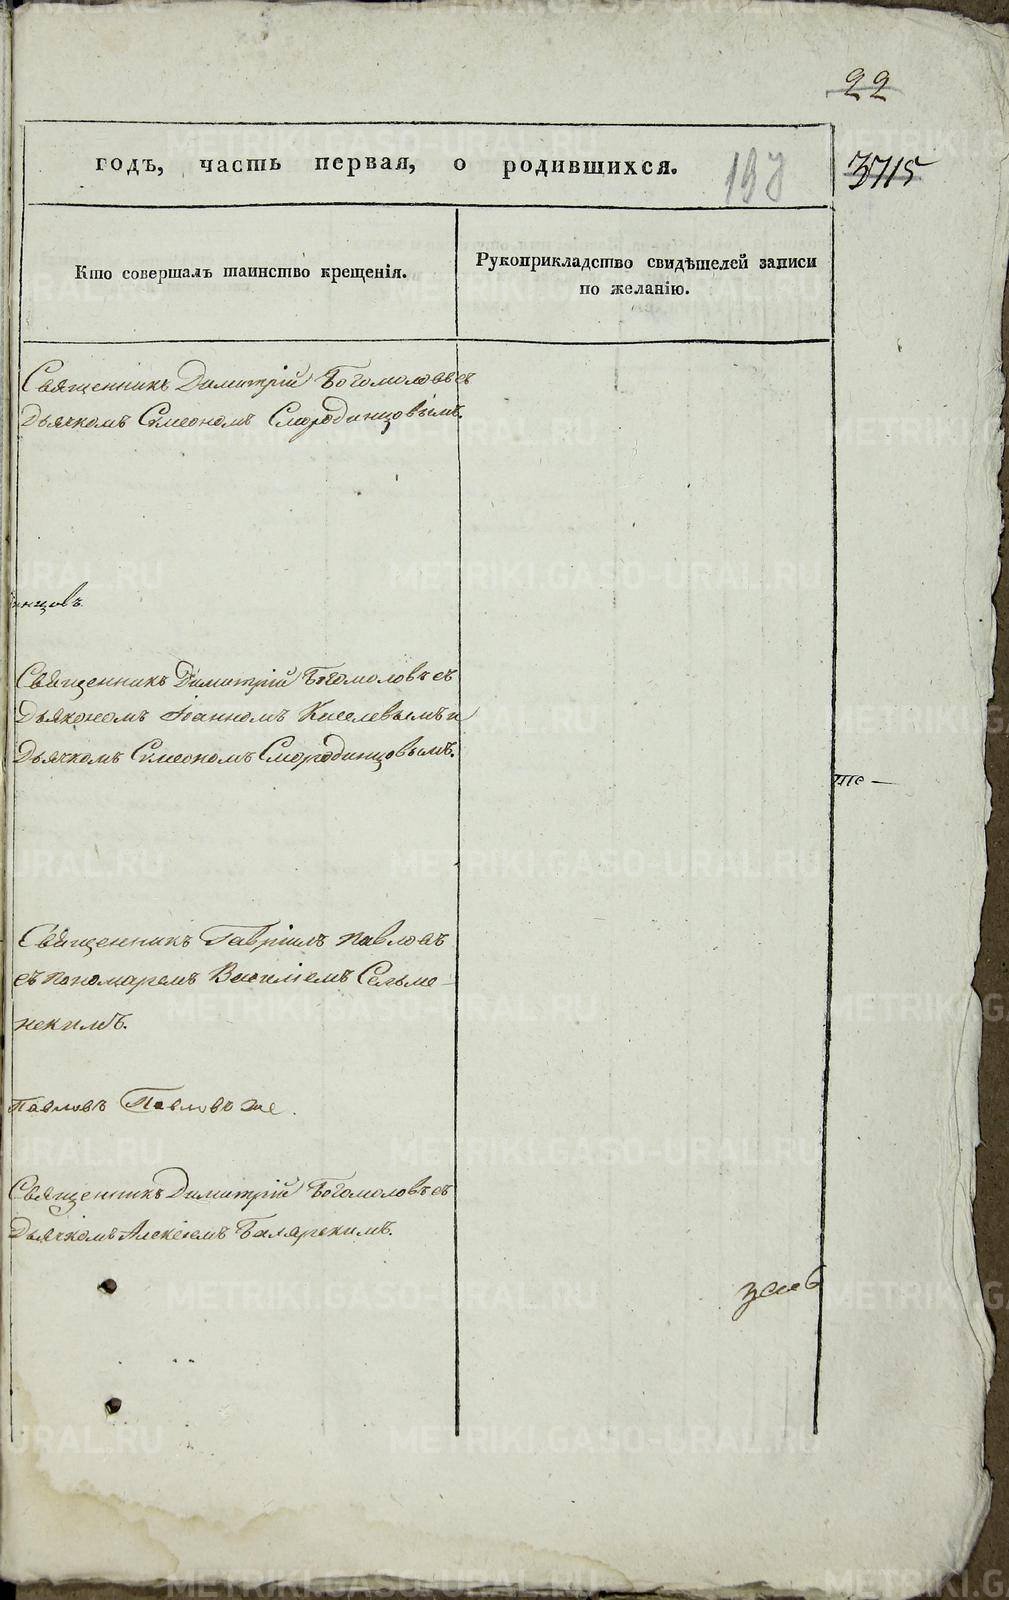 22
годъ, часть первая, о родившихся.
3715
Кто совершалъ таинство крещенія.
Рукоприкладство свидѣтелей записи
по желанію.
Священникъ Димитрій Богомоловъ съ
Дьячкомъ Симеономъ Смородинцовымъ.
нцовъ
Священникъ Димитрій Богомоловъ съ
Дьякономъ Іоанномъ Киселевымъ и
Дьячкомъ Симеономъ Смородинцовымъ.
Священникъ Гавріилъ Павловъ
съ пономаремъ Василіемъ Сельме-
нскимъ.
Павловъ Павловъ же.
Священникъ Димитрій Богомоловъ съ
Дьячкомъ Алексіемъ
METRIKI.GASO-URAL.RU